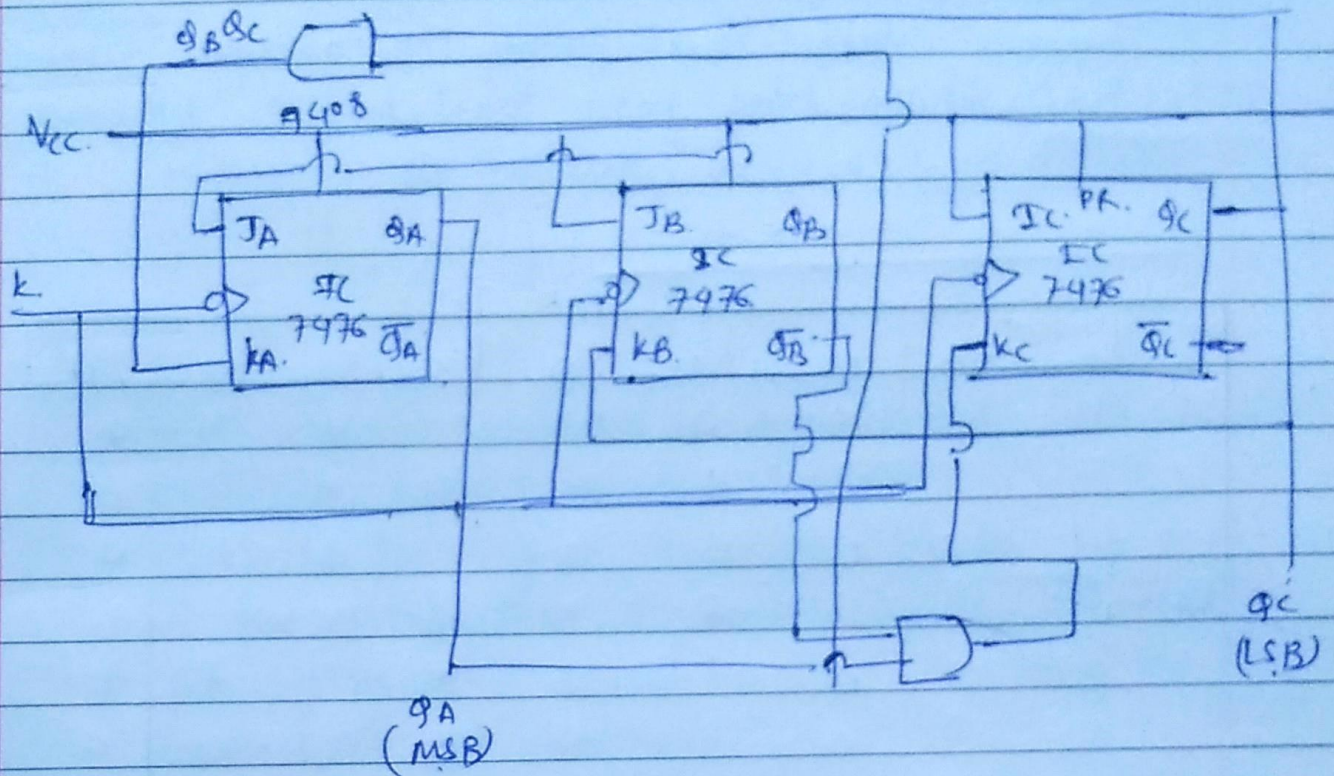 QB QC
7408
VCC.
JA QA
IC
7476
KA. Q̅A
JB QB
IC
7476
KB. Q̅B
PR.
QC
IC
7476
KC Q̅C
k
QA
(MSB)
QC
(LSB)